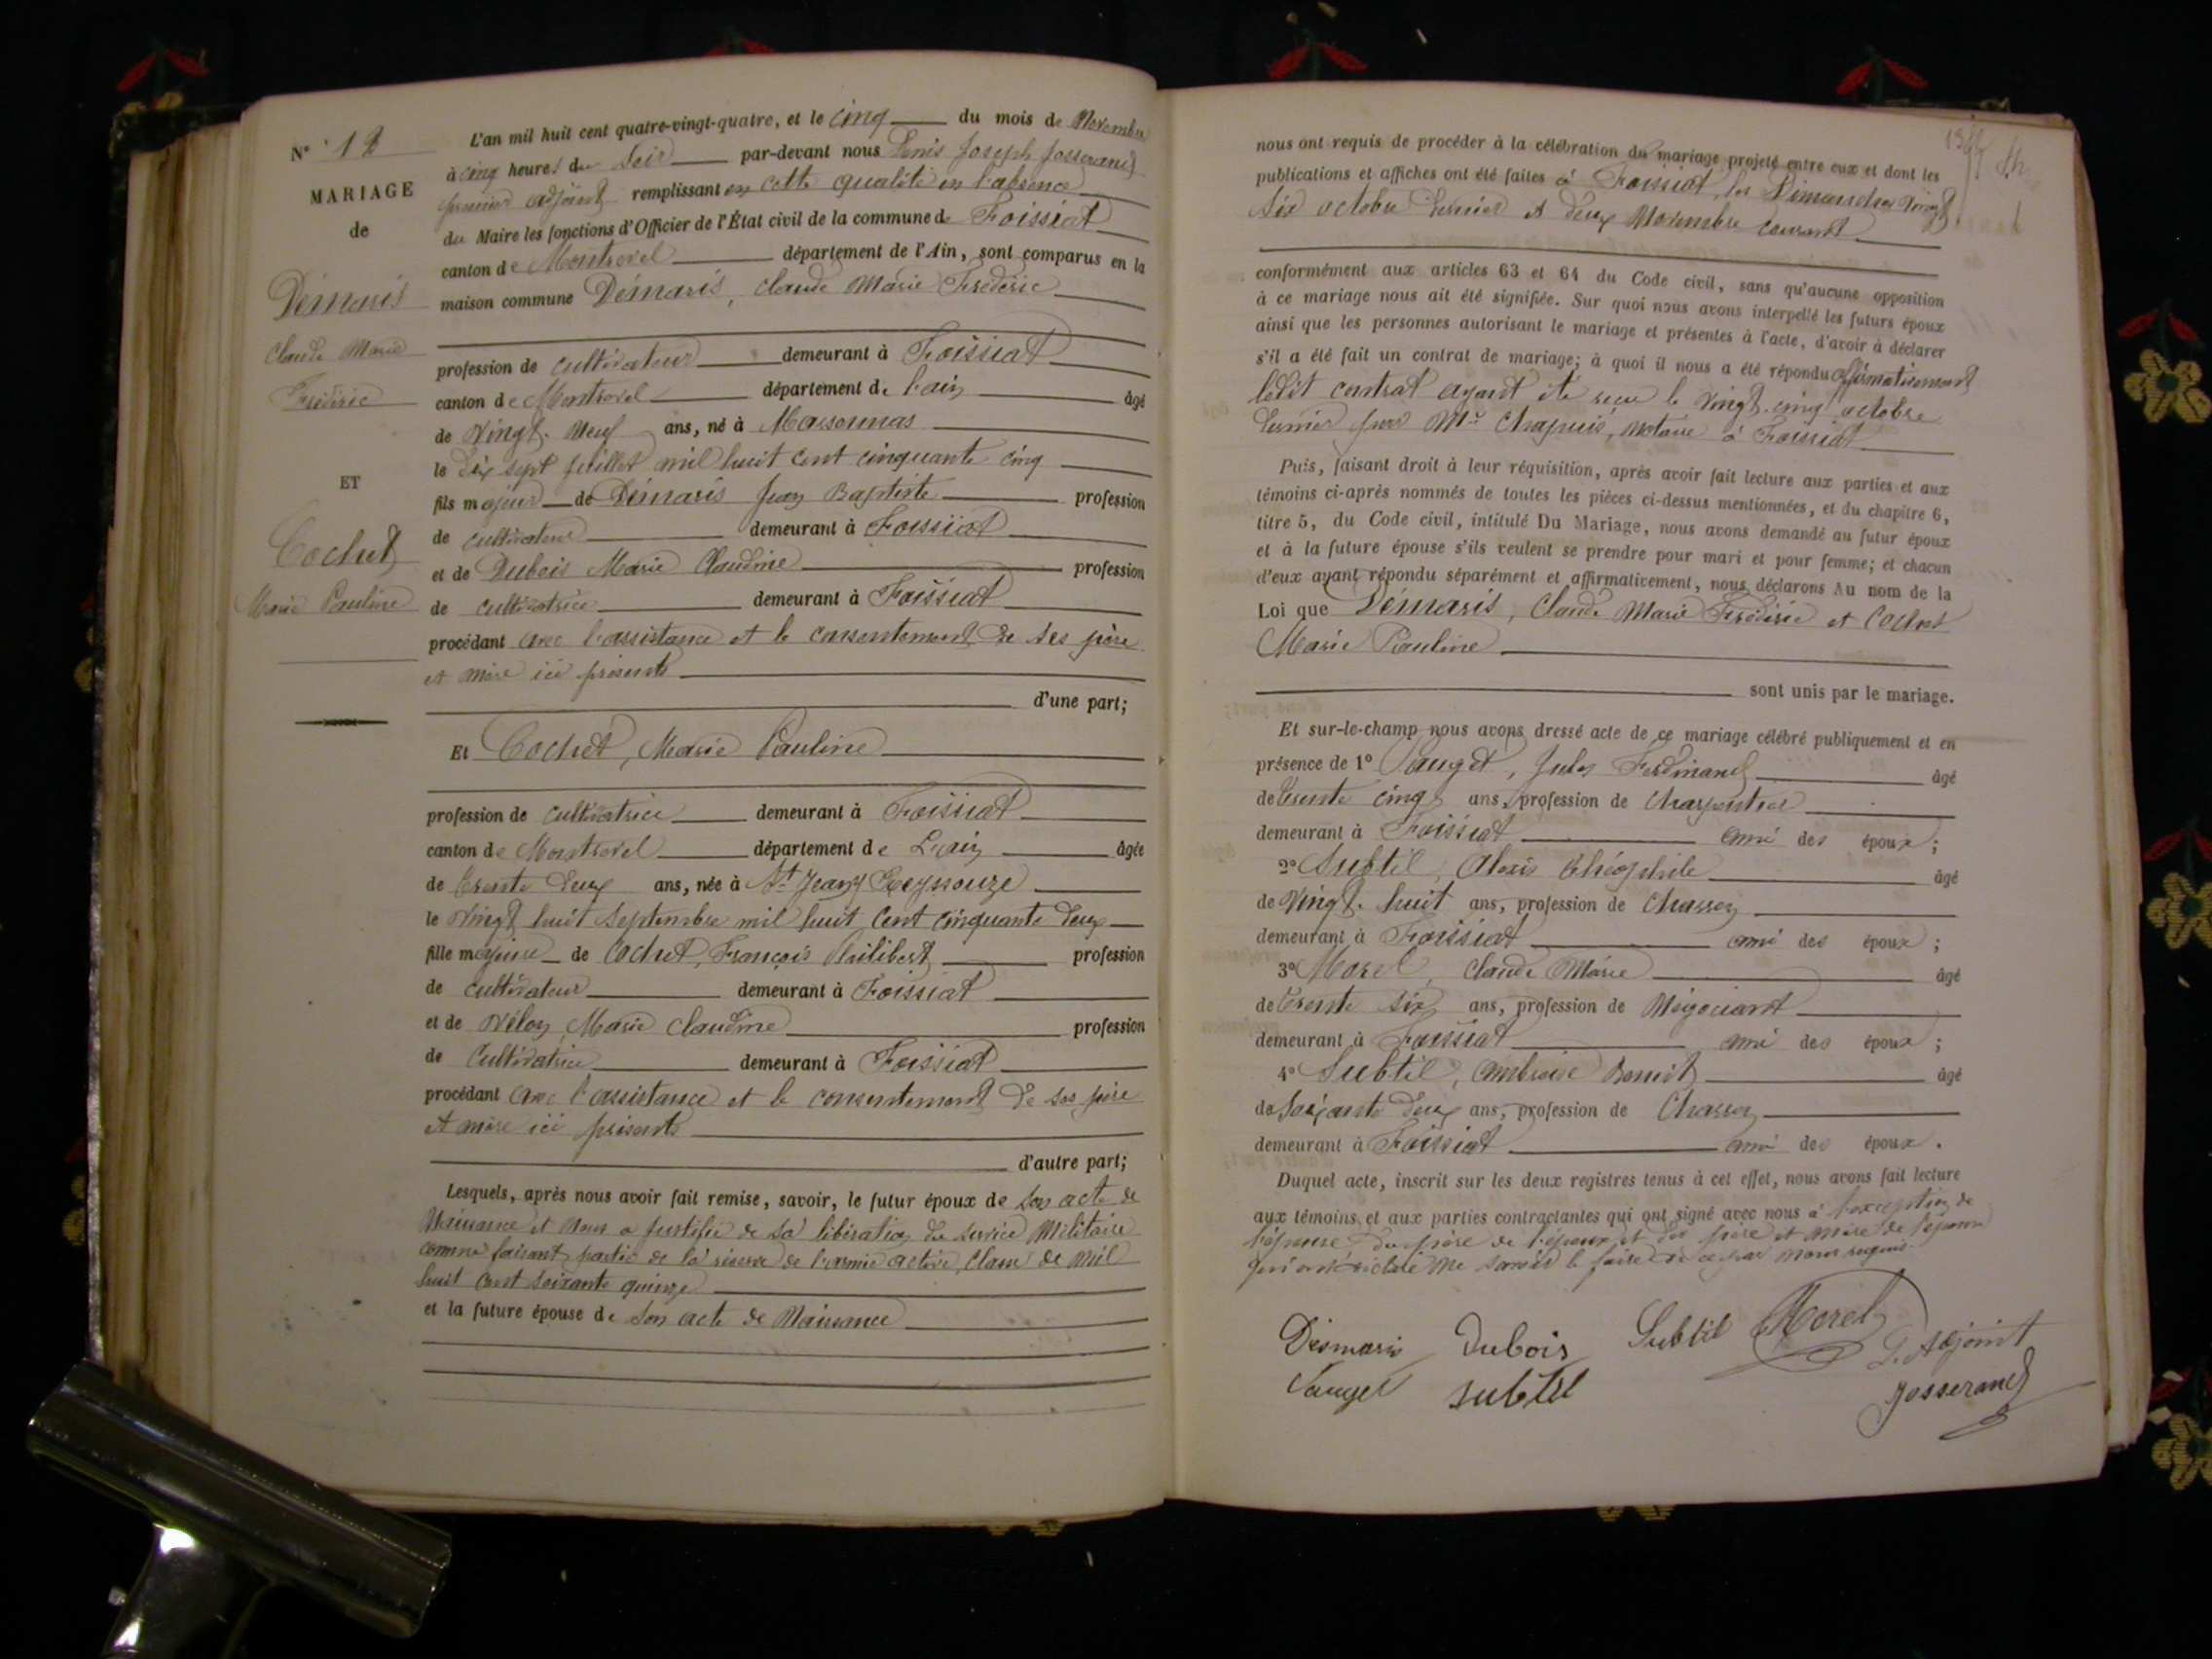 N° 12
MARIAGE
de
Démaris
Claude Marie
Frédéric
ET
Cochet
Marie Pauline
L'an mil huit cent quatre-vingt-quatre, et le cinq du mois de Novembre
à cinq heures du Soir par-devant nous Denis Joseph Josserand
premier adjoint remplissant en cette qualité en l'absence
du Maire les fonctions d'Officier de l'État civil de la commune de Foissiat
canton de Montrevel département de l'Ain, sont comparus en la
maison commune Démaris, Claude Marie Frédéric
profession de cultivateur demeurant à Foissiat
canton de Montrevel département de l'ain âgé
de Vingt-Neuf ans, né à Marsonnas
le dix sept juillet mil huit cent cinquante cinq
fils majeur de Démaris Jean Baptiste profession
de cultivateur demeurant à Foissiat
et de Dubois Marie Claudine profession
de cultivatrice demeurant à Foissiat
procédant avec l'assistance et le consentement de ses père
et mère ici présents
d'une part;
Et Cochet, Marie Pauline
profession de cultivatrice demeurant à Foissiat
canton de Montrevel département de L'ain âgée
de trente deux ans, née à St Jean s/ Reyssouze
le vingt huit Septembre mil huit cent cinquante deux
fille majeure de Cochet, François Philibert profession
de cultivateur demeurant à Foissiat
et de Vélon Marie Claudine profession
de Cultivatrice demeurant à Foissiat
procédant avec l'assistance et le consentement de ses père
et mère ici présents
d'autre part;
Lesquels, après nous avoir fait remise, savoir, le futur époux de son acte de
Naissance et nous a justifié de sa libération du service Militaire
comme faisant partie de la réserve de l'armée active, Classe de mil
huit cent soixante quinze
et la future épouse de son acte de Naissance
nous ont requis de procéder à la célébration du mariage projeté entre eux et dont les
publications et affiches ont été faites à Foissiat, les Dimanches vingt
six octobre dernier et deux Novembre courant
conformément aux articles 63 et 64 du Code civil, sans qu'aucune opposition
à ce mariage nous ait été signifiée. Sur quoi nous avons interpellé les futurs époux
ainsi que les personnes autorisant le mariage et présentes à l'acte, d'avoir à déclarer
s'il a été fait un contrat de mariage; à quoi il nous a été répondu affirmativement
ledit contrat ayant été reçu le vingt-cinq octobre
dernier par Me Chapuis, notaire à Foissiat
Puis, faisant droit à leur réquisition, après avoir fait lecture aux parties et aux
témoins ci-après nommés de toutes les pièces ci-dessus mentionnées, et du chapitre 6,
titre 5, du Code civil, intitulé Du Mariage, nous avons demandé au futur époux
et à la future épouse s'ils veulent se prendre pour mari et pour femme; et chacun
d'eux ayant répondu séparément et affirmativement, nous déclarons Au nom de la
Loi que Démaris, Claude Marie Frédéric et Cochet
Marie Pauline
sont unis par le mariage.
Et sur-le-champ nous avons dressé acte de ce mariage célébré publiquement et en
présence de 1° Pauget, Jules Ferdinand âgé
de trente cinq ans, profession de Charpentier
demeurant à Foissiat ami des époux;
2° Subtil, Alexis Théophile âgé
de Vingt-huit ans, profession de Charron
demeurant à Foissiat ami des époux;
3° Morel, Claude Marie âgé
de trente six ans, profession de Négociant
demeurant à Foissiat ami des époux;
4° Subtil, Ambroise Benoit âgé
de Soixante deux ans, profession de Charron
demeurant à Foissiat ami des époux.
Duquel acte, inscrit sur les deux registres tenus à cet effet, nous avons fait lecture
aux témoins et aux parties contractantes qui ont signé avec nous à l'exception de
l'épouse du père de l'époux et des père et mère de l'épouse
qui ont déclaré ne savoir le faire de ce par nous requis.
Desmaris Dubois Subtil Morel
L'Adjoint
Pauget Subtil Josserand